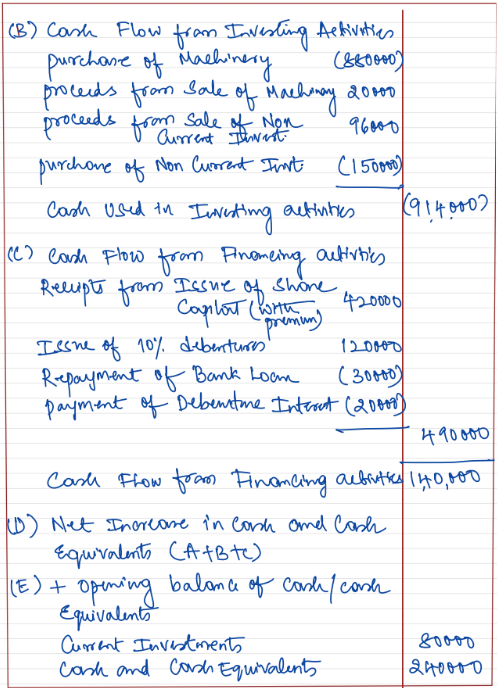 (B) Cash Flow from Investing Activities
purchase of Machinery (880000)
proceeds from Sale of Machinery 20000
proceeds from Sale of Non 96000
Current Invest.
purchase of Non Current Invt (150000)
Cash Used in Investing activities (914,000)
(C) Cash Flow from Financing activities
Receipts from Issue of Share
Capital (with premium) 420000
Issue of 10% debentures 120000
Repayment of Bank Loan (30000)
payment of Debenture Interest (20000)
490000
Cash Flow from Financing activities 1,40,000
(D) Net Increase in Cash and Cash
Equivalents (A+B+C)
(E) + Opening balance of Cash/cash
Equivalents
Current Investments 80000
Cash and Cash Equivalents 240000